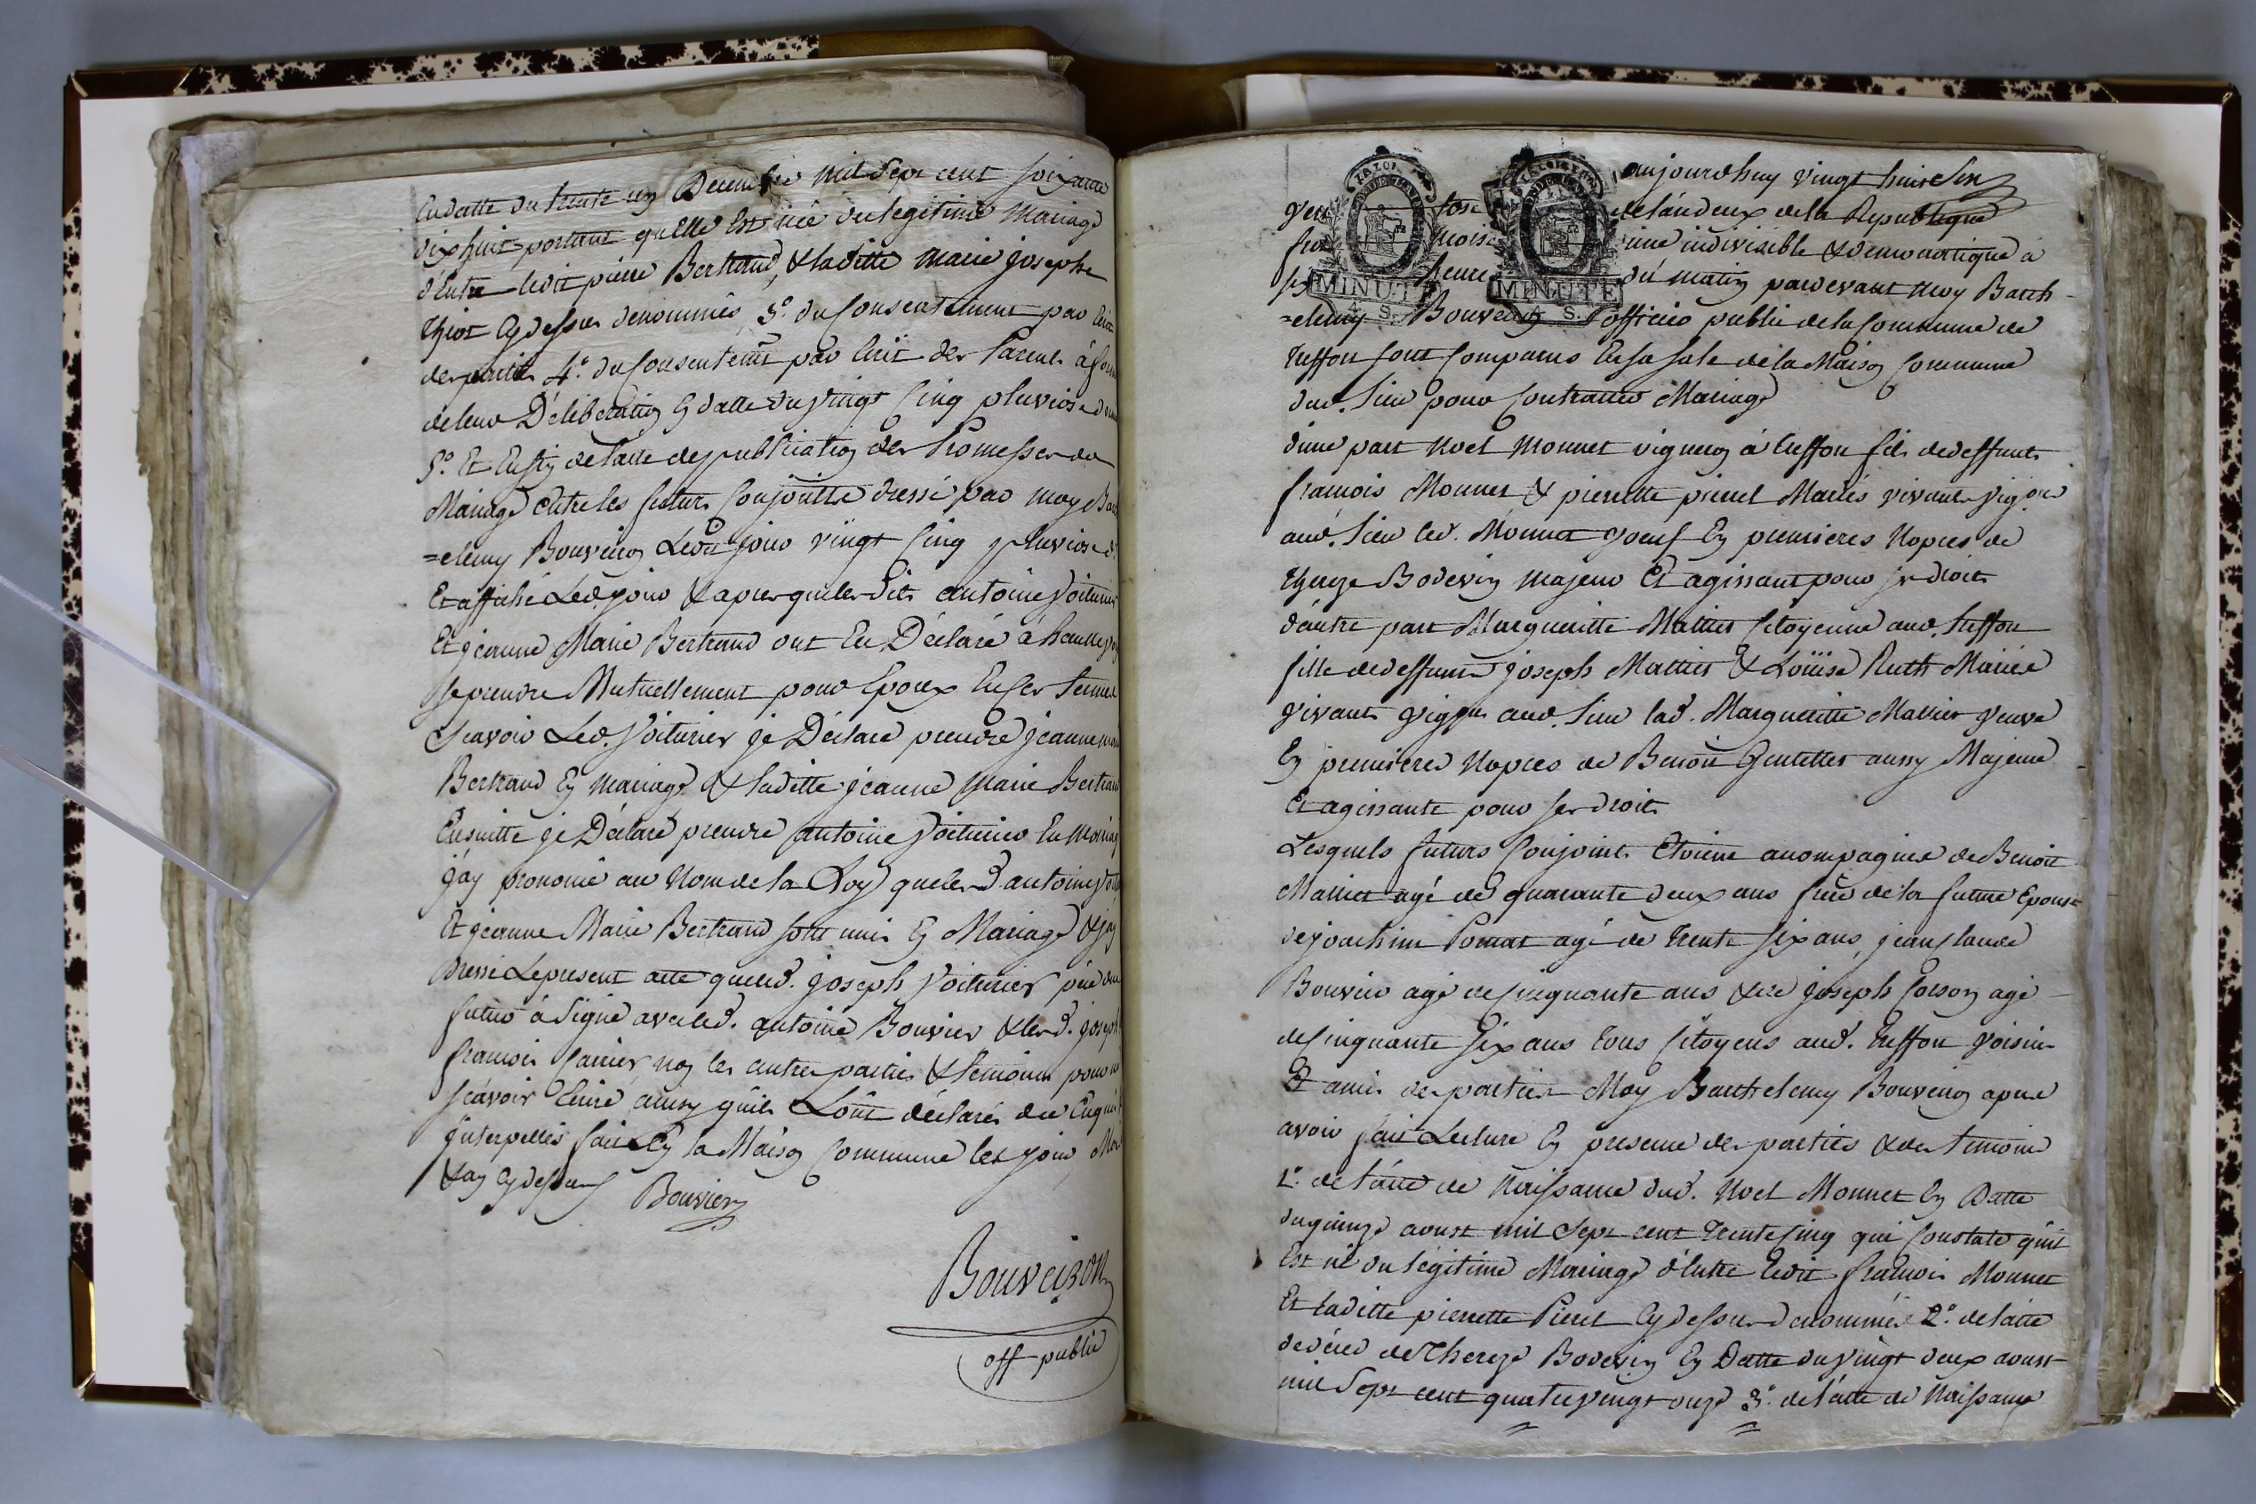 En datte du trente un Decembre mil Sept cent soixante
dix huit portant qu'elle Est née du legitime Mariage
d'Entre ledit pierre Bertrand, & laditte marie josephe
thiot Cy dessus denommés 3°. du Consentement par
des parties 4°. du Consentemt par Ecrit des Parents à
de leur Déliberation En datte du vingt Cinq pluviose
5°. Et Enfin de l'acte de publication des Promesses de
Mariage entre les futurs Conjoints dressé par moy
=elemy Bouveiron Ledit jour vingt Cinq pluviose
Et affiché Led. jour & apres que lesdits antoine Voiturier
Et jeanne Marie Bertrand ont Eu Déclaré à haute
se prendre Mutuellement pour Epoux En Ces termes
Scavoir Led. Voiturier je Déclare prendre jeanne
Bertrand En mariage & laditte jeanne Marie Bertrand
Ensuitte je Déclare prendre antoine Voiturier En Mariage
j'ay prononcé au Nom de la Loy que lesd. antoine
Et jeanne Marie Bertrand sont unis En Mariage & j'ay
Dressé Le present acte que led. joseph Voiturier père du
futur à Signé avec led. antoine Bouvier & led. joseph
francois non les autres parties & temoins pour
scavoir Ecrire ainsy qu'ils L'ont déclarés de
Interpellés fait En la Maison Commune les jour,
& an Cy dessus Bouvier
Bouveiron
off public
aujourdhuy vingt huit
de l'an deux de la Republique
une indivisible & democratique a
heure du matin pardevant moy Barth
MINUTE
MINUTE
=elemy Bouveiron officier public de la Commune de
treffort sont Comparus En la sale de la Maison Commune
dud. Lieu pour Contracter Mariage
d'une part Noel Monnet vigneron à treffort fils de deffunts
francois Monnet & pierrette Mariés vivants
aud. Lieu led. Monnet Voeuf En premieres Nopces de
thereze Bodevin majeur Et agissant pour ses droits
d'autre part Margueritte Mattiet Citoyenne aud. treffort
fille de deffunts joseph Mattiet & Louise Ruth Mariés
vivants aud. Lieu lad. Margueritte Mattiet veuve
En premieres Nopces de Benoit Gentelles aussy Majeure
Et agissante pour ses droits
Lesquels futurs Conjoints Etoient accompagnés de Benoit
Mattiet agé de quarante deux ans frere de la future Epouse
de joachim agé de trente six ans, jean claude
Bouvier agé de Cinquante ans & de joseph agé
de Cinquante Six ans tous Citoyens aud. treffort Voisins
Et amis des parties Moy Barthelemy Bouveiron apres
avoir fait Lecture En presence des parties & des temoins
1°. de l'acte de Naissance dud. Noel Monnet En Datte
du quinze aoust mil Sept cent trente Cinq qui Constate qu'il
Est né du légitime Mariage d'Entre ledit francois Monnet
Et laditte pierrette Cy dessus denommés 2°. de l'acte
de décès de Thereze Bodevin En Datte du vingt deux aoust
mil Sept cent quatrevingt onze 3°. de l'acte de Naissance